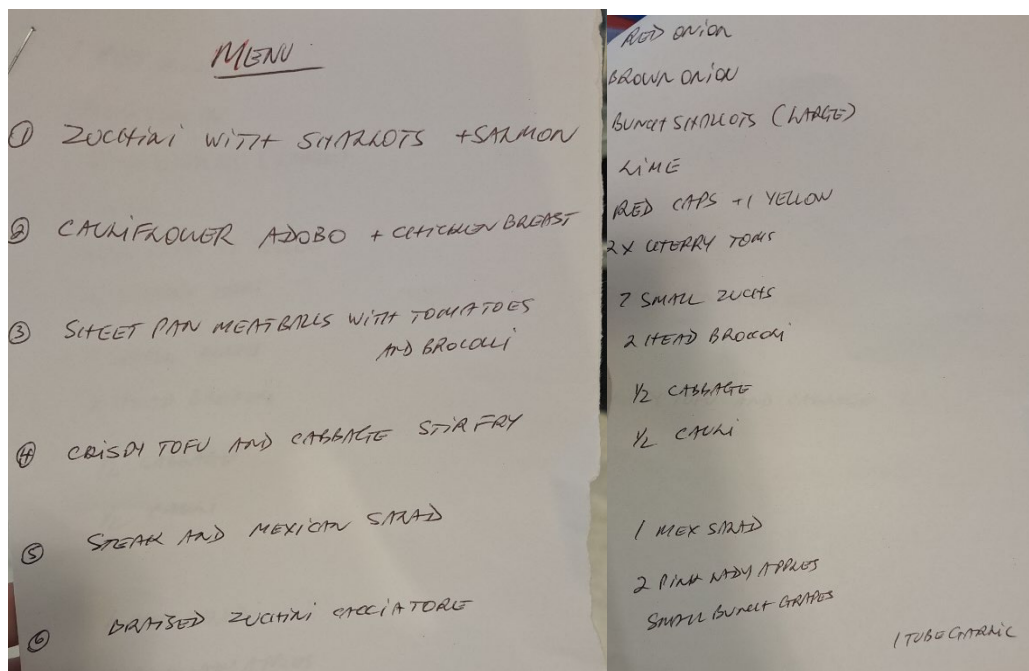 MENU
① ZUCCHINI WITH SHALLOTS + SALMON
② CAULIFLOWER ADOBO + CHICKEN BREAST
③ SHEET PAN MEATBALLS WITH TOMATOES
AND BROCOLLI
④ CRISPY TOFU AND CABBAGE STIR FRY
⑤ STEAK AND MEXICAN SALAD
⑥ BRAISED ZUCCHINI CACCIATORE
RED ONION
BROWN ONION
BUNCH SHALLOTS (LARGE)
LIME
RED CAPS + 1 YELLOW
2X CHERRY TOMS
7 SMALL ZUCHS
2 HEAD BROCCOLI
1/2 CABBAGE
1/2 CAULI
1 MEX SALAD
2 PINK LADY APPLES
SMALL BUNCH GRAPES
1 TUBE GARLIC